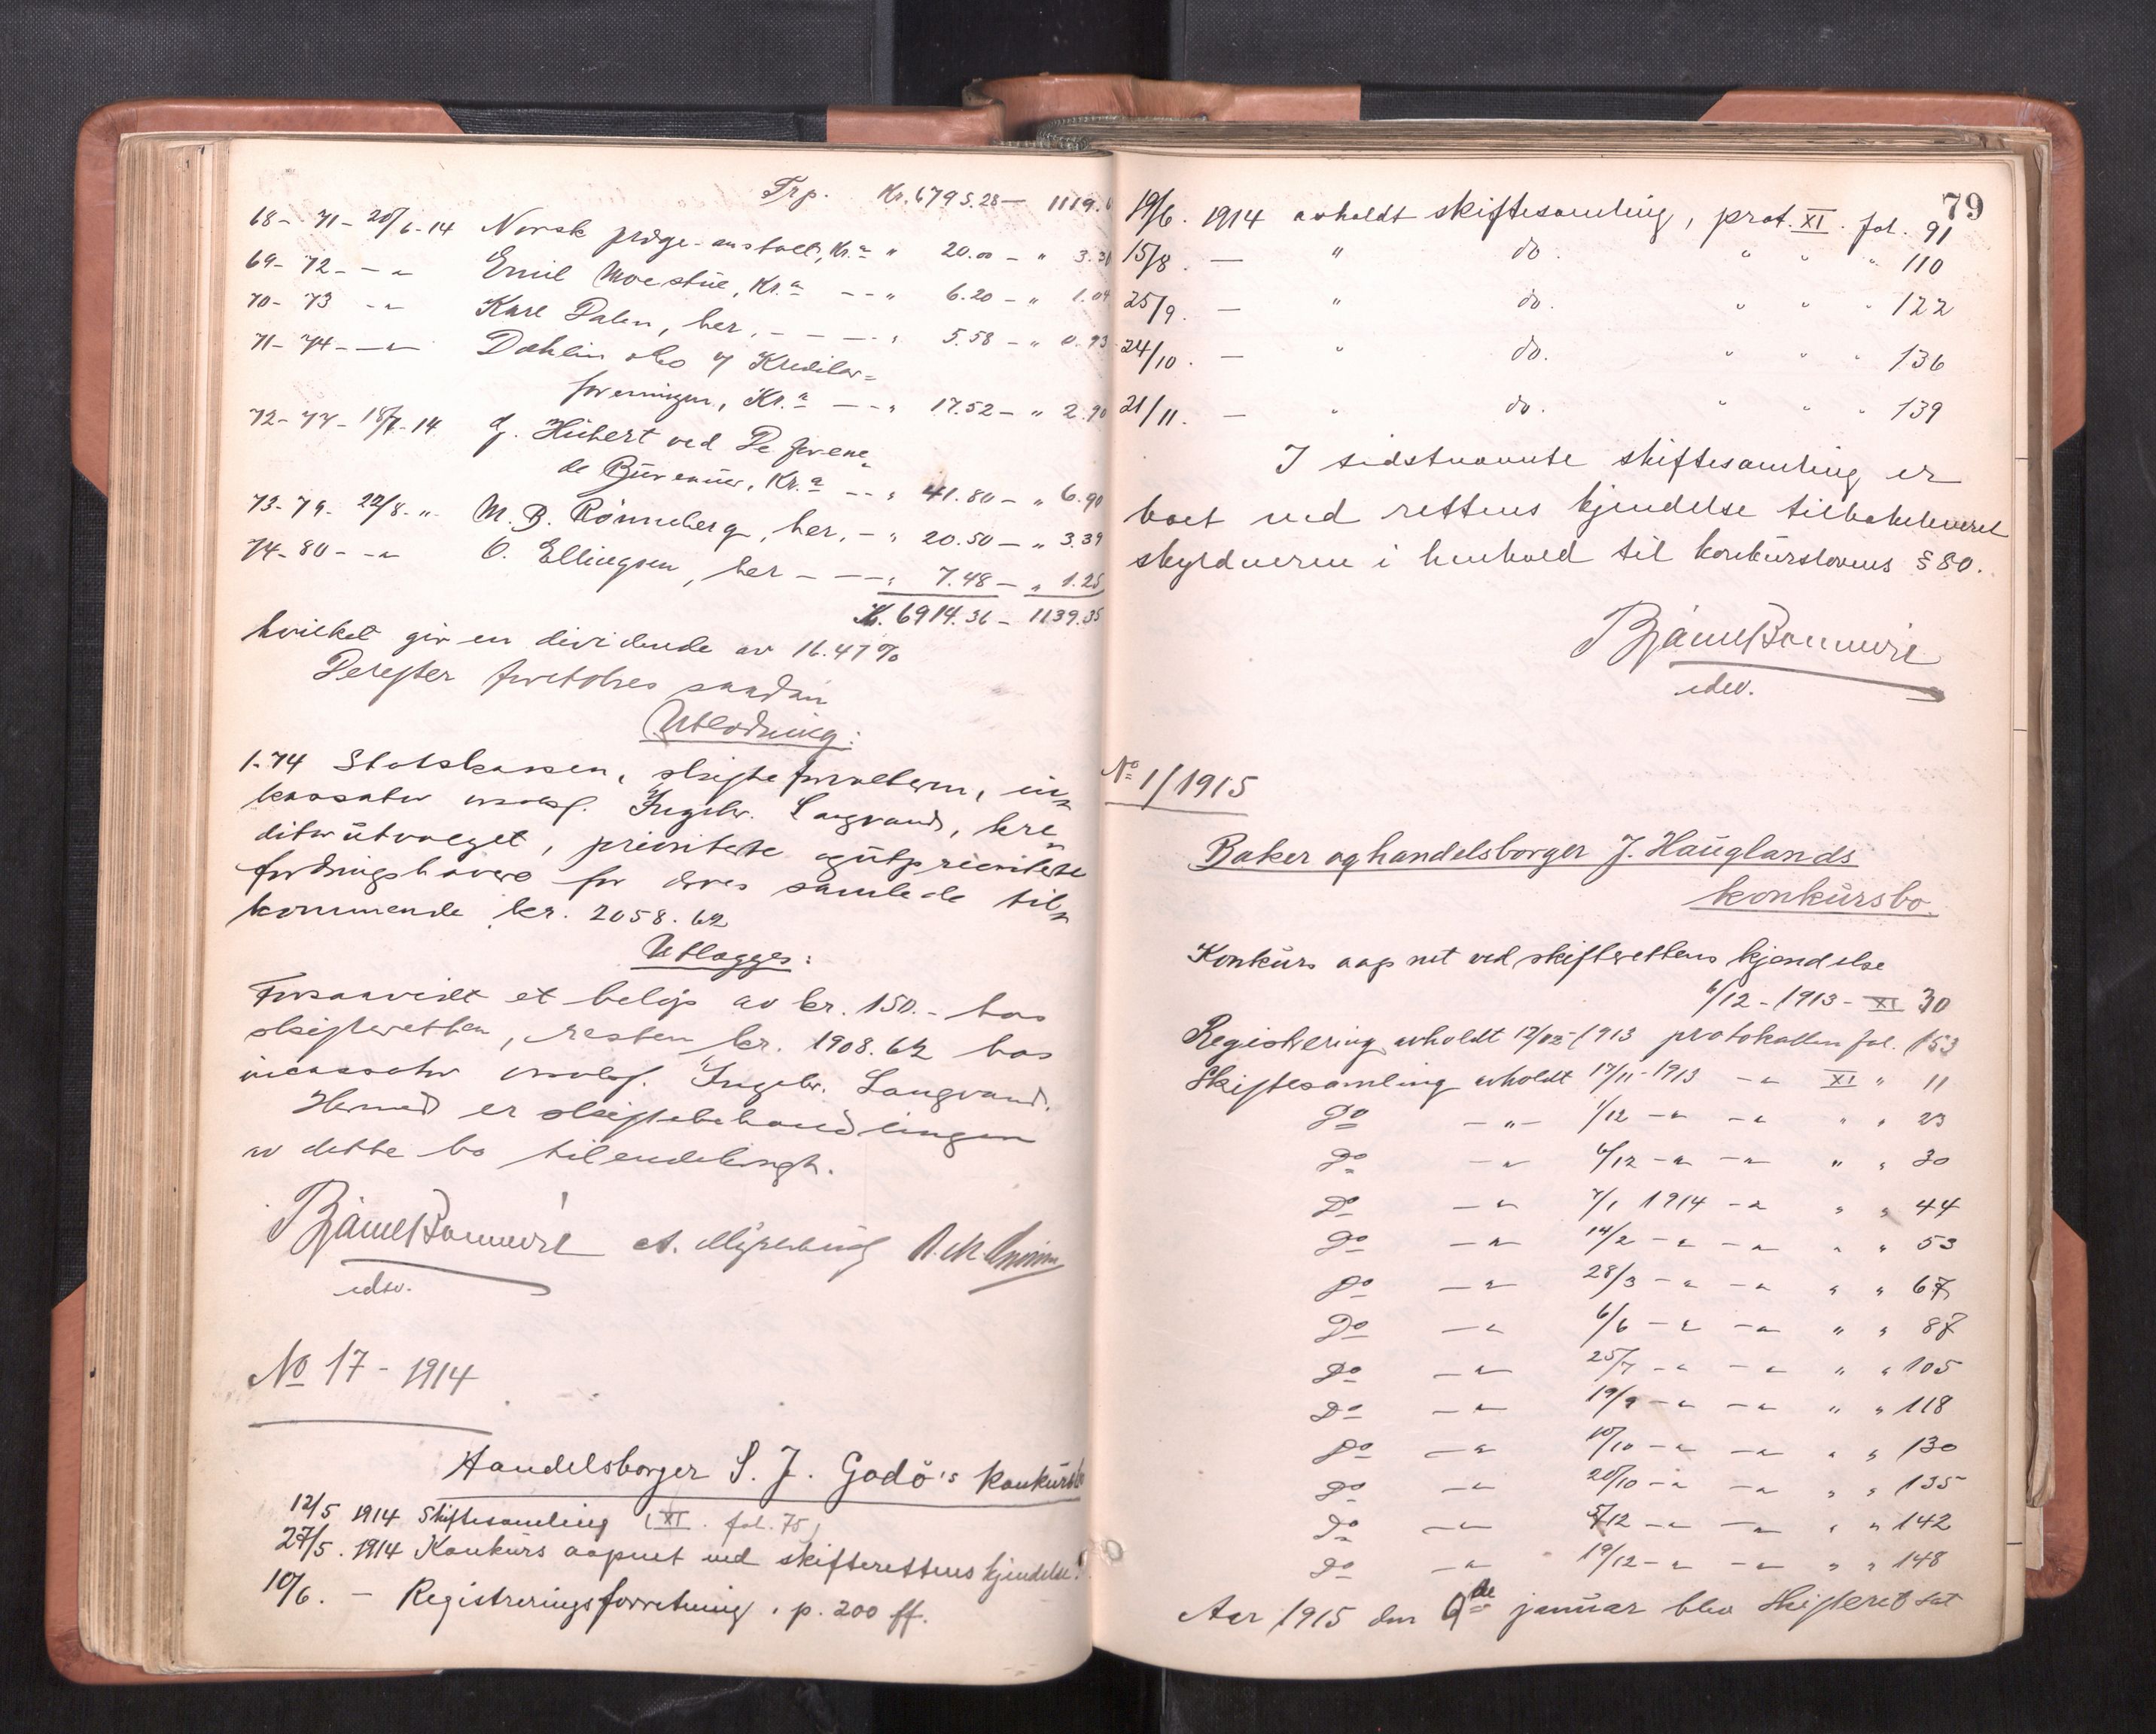 Trp. Kr. 6795.28 — 1119.
68 - 71 - 20/6-14 Norsk præge-anstalt, Kr.a " 20.00 - " 3.30
69 - 72 - - " Emil Moestue, Kr.a - - " 6.20 - " 1.04
70 - 73 - " Karl Dalen, her, - - - " 5.58 - " 0.93
71 - 74 - - " Dahlin & Co v/ Kreditor=
foreningen, Kr.a - - " 17.52 - " 2.90
72 - 77 - 18/7-14 J. Hübert ved De forene=
de Büreauer, Kr.a - - " 41.80 - " 6.90
73 - 79 - 22/8 - " - M. B. Rönneberg, her, - " 20.50 - " 3.39
74 - 80 - - " O. Ellingsen, her - - - " 7.48 - " 1.25
Kr. 6914.36 - 1139.35
hvilket gir en dividende av 16.47%
Derefter foretokes saadan
Utlodning:
1-74 Statskassen, skifteforvalteren, in=
kassator Ingebr. Langvand, kre=
ditorutvalget, prioriterte og utprioriterte
fordringshavere for deres samlede til=
kommende kr. 2058.62
Utlægges:
Forsaavidt et beløp av kr. 150.- hos
skifteretten, resten kr. 1908.62 hos
incassator Ingebr. Langvand.
Hermed er skiftebehandlingen
av dette bo tilendebragt.
edsv.
No 17 - 1914
Handelsborger S. J. Godö's konkürsbo
12/5 1914 Skiftesamling (XI. fol. 75)
27/5. 1914 Konkürs aapnet ved skifterettens kjendelse
10/6. - Registreringsforretning, p. 200 ff.
79
19/6. 1914 avholdt skiftesamling, prot. XI. fol. 91
15/8. — " do. " " " 110
25/9. — " do. " " " 122
24/10. — " do. " " " 136
21/11. — " do. " " " 139
I sidstnævnte skiftesamling er
boet ved rettens kjendelse tilbakeleveret
skyldneren i henhold til konkürslovens § 80.
edsv.
No 1/1915
Baker og handelsborger J. Haüglands
konkürsbo.
Konkürs aapnet ved skifterettens kjendelse
6/12 - 1913 - XI 30
Registrering avholdt 12/12-1913 protokollen fol. 153
Skiftesamling avholdt 17/11-1913 - " XI " 11
Do - " - 1/12 - " - " " " 23
Do - " 6/12 - " - " " " 30
Do - " 7/1 1914 - " " " 44
Do - " 14/2 - " - " " " 53
Do - " 28/3 - " - " " " 67
Do - " 6/6 - " - " " " 87
Do - " 25/7 - " - " " " 105
Do - " 19/9 - " - " " " 118
Do - " 10/10 - " - " " " 130
Do - " 20/10 - " - " " " 135
Do - " 5/12 - " - " " " 142
Do - " 19/12 - " - " " " 148
Aar 1915 den 9de janüar blev skifteret sat